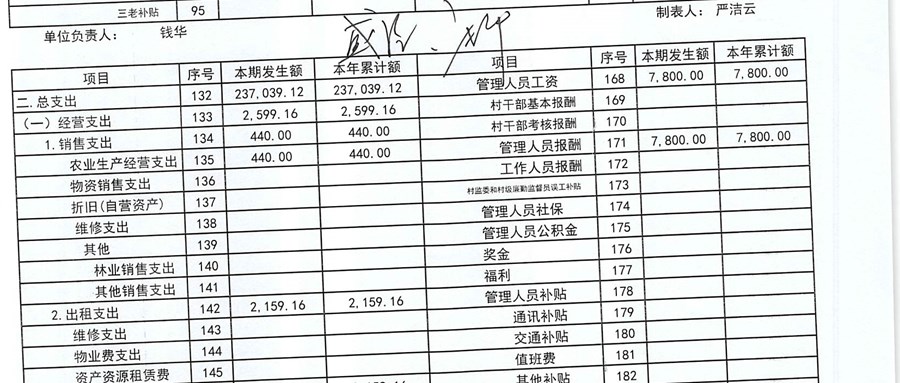 三老补贴 95
单位负责人： 钱华 制表人： 严洁云
项目 序号 本期发生额 本年累计额 项目 序号 本期发生额 本年累计额
二.总支出 132 237,039.12 237,039.12 管理人员工资 168 7,800.00 7,800.00
（一）经营支出 133 2,599.16 2,599.16 村干部基本报酬 169
1.销售支出 134 440.00 440.00 村干部考核报酬 170
农业生产经营支出 135 440.00 440.00 管理人员报酬 171 7,800.00 7,800.00
物资销售支出 136 工作人员报酬 172
折旧(自营资产) 137 173
维修支出 138 管理人员社保 174
其他 139 管理人员公积金 175
林业销售支出 140 奖金 176
其他销售支出 141 福利 177
2.出租支出 142 2,159.16 2,159.16 管理人员补贴 178
维修支出 143 通讯补贴 179
物业费支出 144 交通补贴 180
资产资源租赁费 145 值班费 181
其他补贴 182